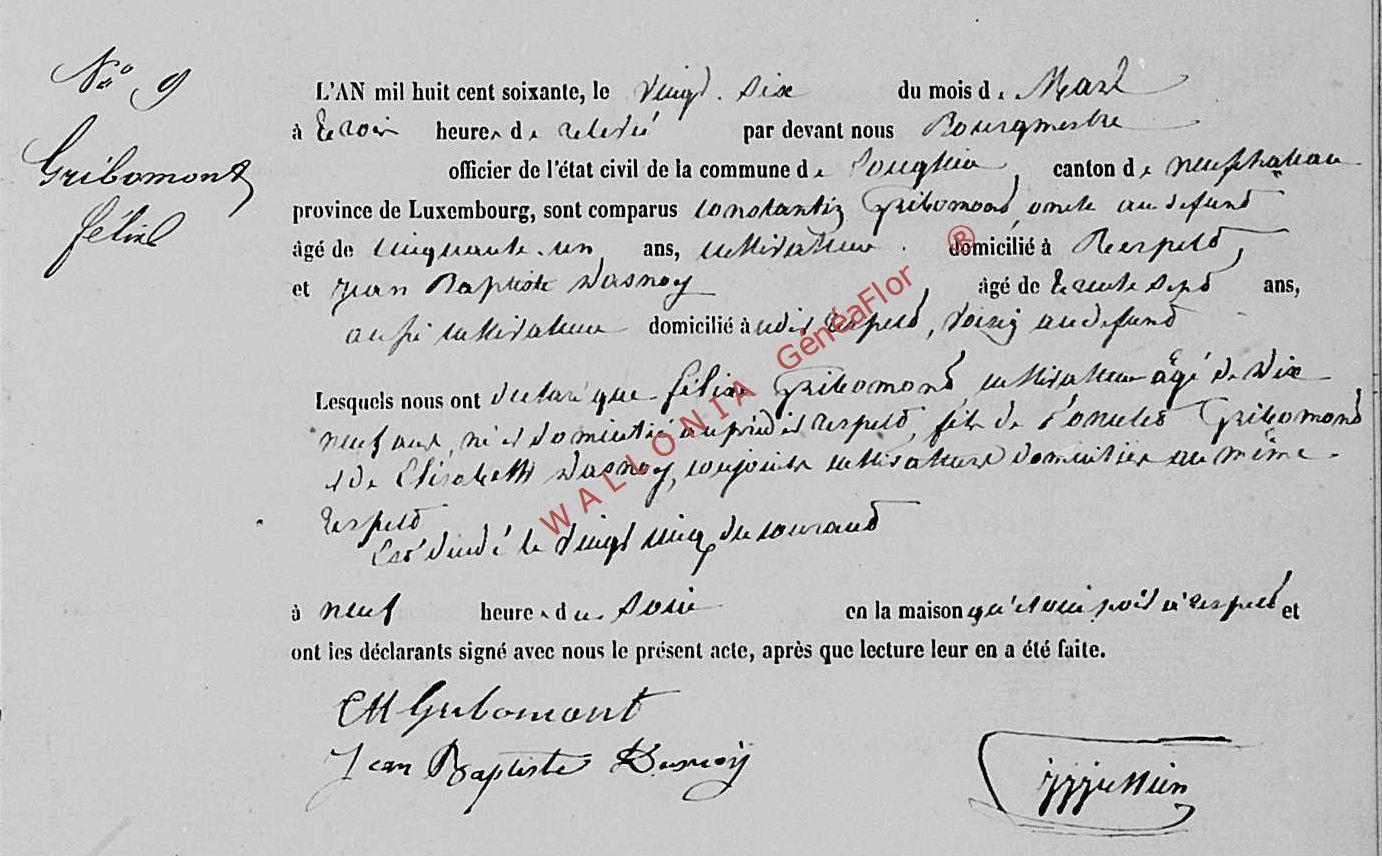 N° 9
Gribomont
félix
L'AN mil huit cent soixante, le vingt six du mois de Mars
à trois heures de relevée par devant nous Bourgmestre
officier de l'état civil de la commune de Longlier, canton de neufchateau
province de Luxembourg, sont comparus Constantin Gribomont, oncle au défunt
âgé de cinquante un ans, cultivateur domicilié à Respelt,
et Jean Baptiste Dasnoy, âgé de trente sept ans,
aussi cultivateur domicilié à udit Respelt, voisin au défunt
Lesquels nous ont déclaré que félix Gribomont, cultivateur âgé de dix
neuf ans, né et domicilié au prédit Respelt, fils de Gribomont
et de Elisabeth Dasnoy, conjoints cultivateurs domiciliés au même
Respelt
Est décédé le vingt cinq du courant
à neuf heures du soir en la maison Respelt et
ont les déclarants signé avec nous le présent acte, après que lecture leur en a été faite.
CH Gribomont
Jean Baptiste Dasnoy
WALLONIA GénéaFlor ®